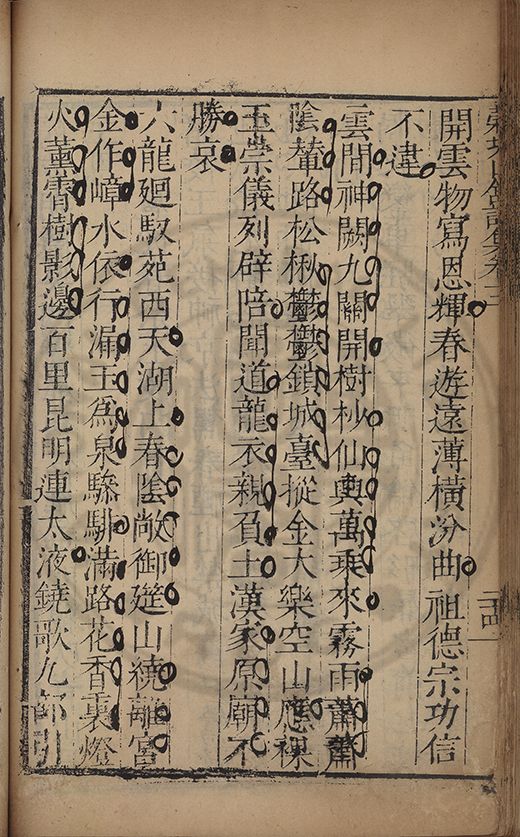 開雲物寫恩輝春遊遠薄橫汾曲祖德宗功信
不違
雲間神闕九關開樹杪仙輿萬乗來霧雨蕭蕭
陰輦路松楸鬱鬱鎖城臺摐金大樂空山應祼
玉崇儀列辟陪聞道龍衣親負土漢家原廟不
勝哀
六龍廻馭苑西天湖上春陰敞御筵山繞離宮
金作嶂水依行漏玉為泉驂騑滿路花香裏燈
火薰霄樹影邊百里昆明連太液鐃歌九部引
二
二四